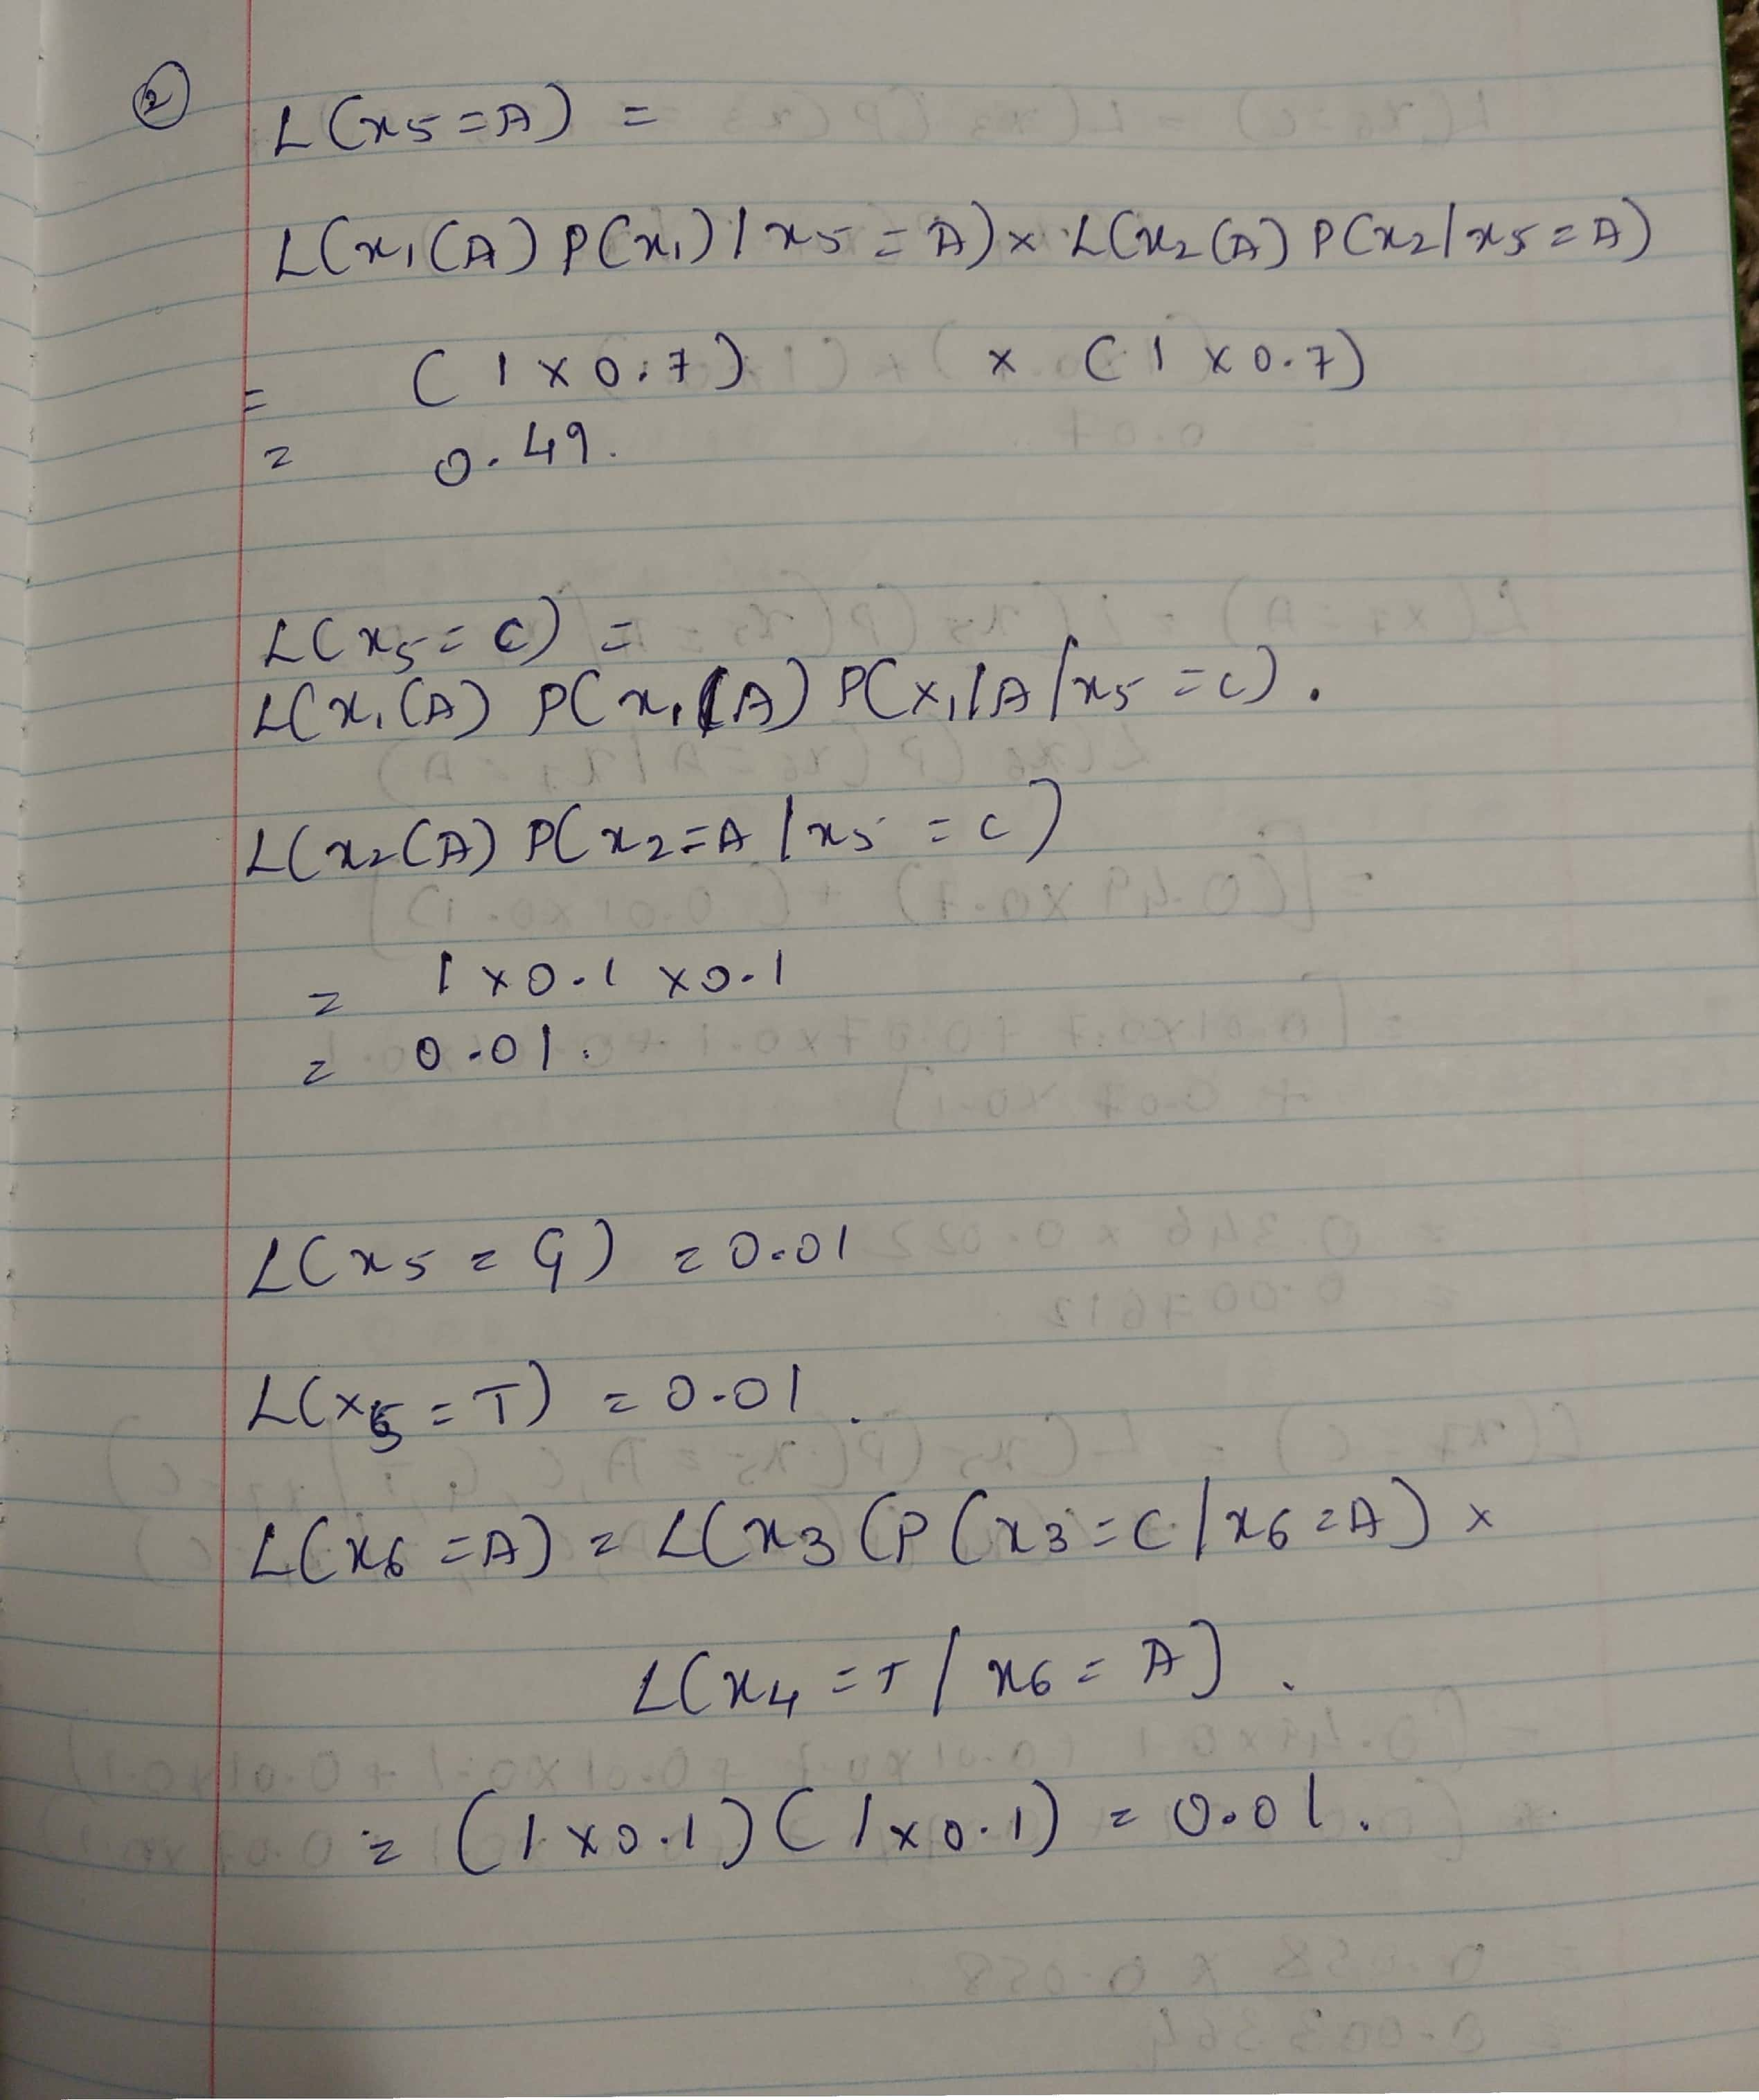 ②
L(x5=A) =
L(x1(A) P(x1) | x5 = A) x L(x2(A) P(x2|x5=A)
= (1 x 0.7) x (1 x 0.7)
= 0.49.
L(x5=C) =
L(x1(A) P(x1(A) P(x1|A/x5=C).
L(x2(A) P(x2=A/x5=C)
= 1 x 0.1 x 0.1
= 0.01.
L(x5=G) = 0.01
L(x5=T) = 0.01.
L(x6=A) = L(x3(P(x3=C/x6=A) x
L(x4=T/x6=A).
= (1x0.1)(1x0.1) = 0.01.